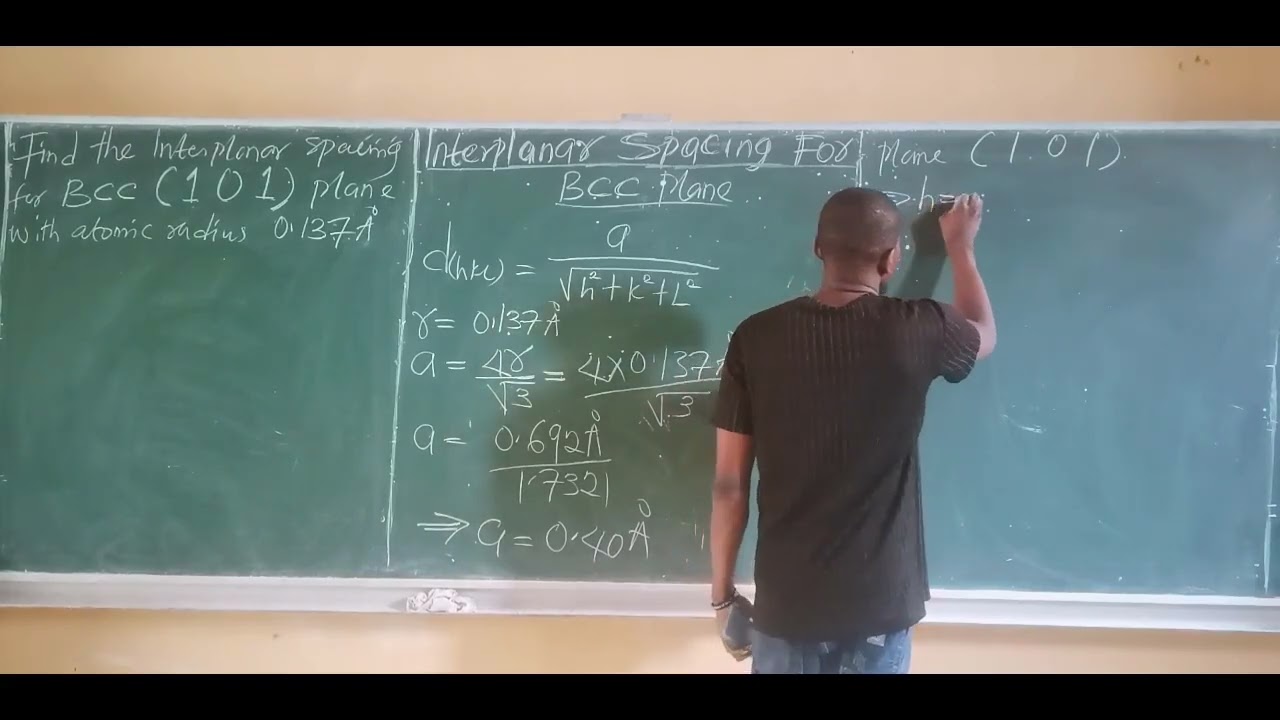 Find the Interplanar spacing
for BCC (1 0 1) plane
with atomic radius 0.137Å
Interplanar Spacing For
BCC Plane
d(hkl) = a / √h²+k²+L²
r = 0.137Å
a = 4r/√3 = 4x0.137Å / √3
a = 0.692Å / 1.7321
⇒ a = 0.40Å
plane (1 0 1)
⇒ h =